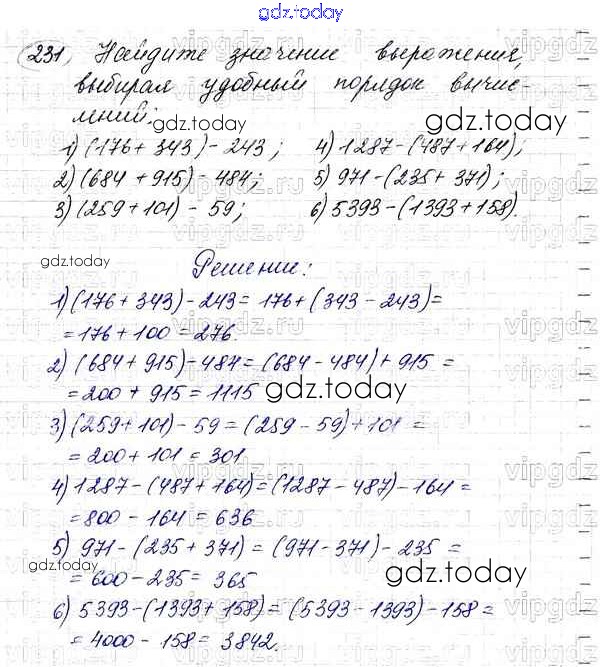 gdz.today
231, Найдите значение выражения,
выбирая удобный порядок вычис-
лений:
gdz.today
1) (176 + 343) - 243; 4) 1287 - (487 + 164);
2) (684 + 915) - 484; 5) 971 - (235 + 371);
3) (259 + 101) - 59; 6) 5393 - (1393 + 158).
gdz.today
gdz.today
Решение:
1) (176 + 343) - 243 = 176 + (343 - 243) =
= 176 + 100 = 276.
2) (684 + 915) - 484 = (684 - 484) + 915 =
= 200 + 915 = 1115
gdz.today
3) (259 + 101) - 59 = (259 - 59) + 101 =
= 200 + 101 = 301
4) 1287 - (487 + 164) = (1287 - 487) - 164 =
= 800 - 164 = 636
5) 971 - (235 + 371) = (971 - 371) - 235 =
gdz.today
= 600 - 235 = 365
gdz.today
6) 5393 - (1393 + 158) = (5393 - 1393) - 158 =
= 4000 - 158 = 3842.